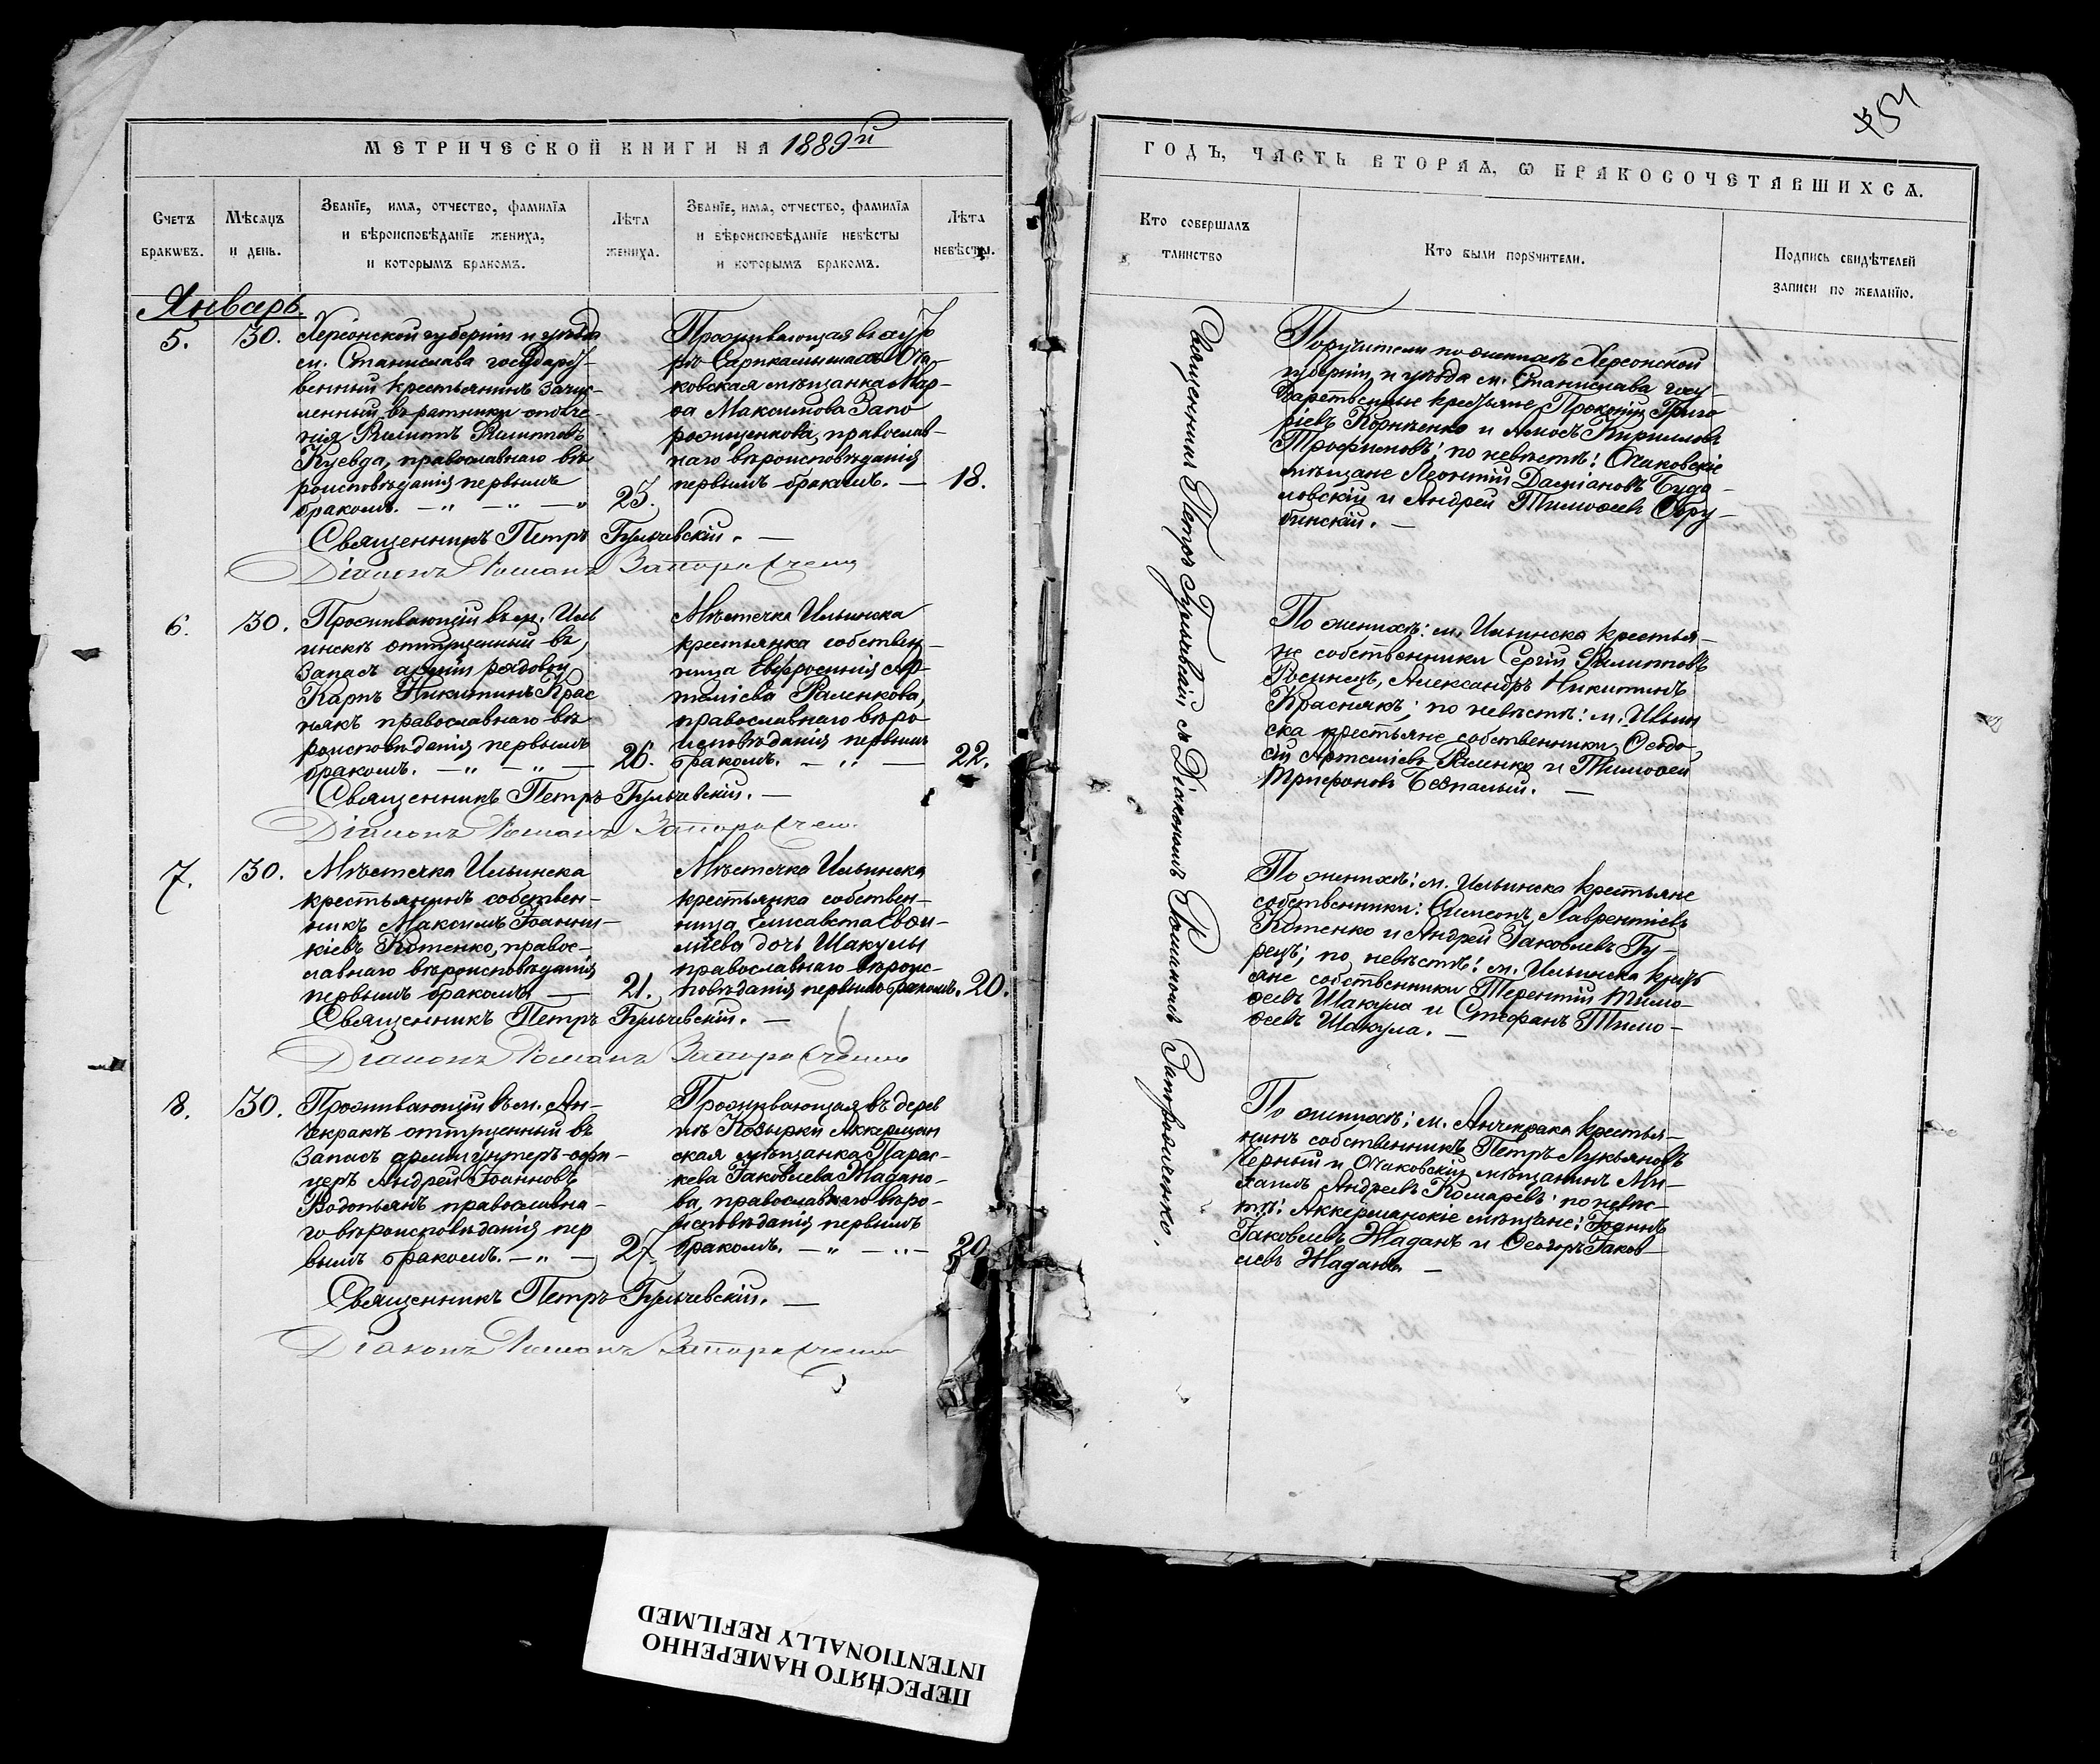 МЕТРИЧЕСКОЙ КНИГИ НА 1889й
Счетъ браковъ.
Мѣсяцъ и день.
Званіе, имя, отчество, фамилія
и вѣроисповѣданіе жениха,
и которымъ бракомъ.
Лѣта
жениха.
Званіе, имя, отчество, фамилія
и вѣроисповѣданіе невѣсты
и которымъ бракомъ.
Лѣта
невѣсты.
Январь
5.
30.
Херсонской губерніи и уѣзда
м. Станислава государст-
венный крестьянинъ зачис-
ленный въ ратники ополче-
нія Филиппъ Филипповъ
Куевда, православнаго вѣ
роисповѣданія первымъ
бракомъ. — „ — „ — „
25.
Проживающая въ
Оча-
ковская мѣщанка Мар-
ѳа Максимова Запо
рожщенкова, православ-
наго вѣроисповѣданія
первымъ бракомъ. —
18.
Священникъ Петръ Гульчевскій. —
Діаконъ Романъ Запорожченко
6.
30.
Проживающій въ м. Иль
инскѣ отпущенный въ
запасъ арміи рядовой
Карпъ Никитинъ Крас
някъ православнаго вѣ
роисповѣданія первымъ
бракомъ. — „ — „ —
26.
Мѣстечка Ильинска
крестьянка собствен-
ница Евфросинія Ар-
теміева Фаленкова,
православнаго вѣро-
исповѣданія первымъ
бракомъ. — „ —
22.
Священникъ Петръ Гульчевскій. —
Діаконъ Романъ Запорожченко
7.
30.
Мѣстечка Ильинска
крестьянинъ собствен-
никъ Максимъ Іоанни-
кіевъ Котенко, правос-
лавнаго вѣроисповѣданія
первымъ бракомъ —
21.
Мѣстечка Ильинска
крестьянка собствен-
ница Елисавета
дочь Шакулы
православнаго вѣроис-
повѣданія первымъ бракомъ.
20.
Священникъ Петръ Гульчевскій. —
Діаконъ Романъ Запорожченко
8.
30.
Проживающій въ м. Ан-
чекракѣ отпущенный въ
запасъ арміи унтеръ-офи-
церъ Андрей Іоанновъ
Водопьянъ православна-
го вѣроисповѣданія пер
вымъ бракомъ. — „ —
27.
Проживающая въ дерев
нѣ Козырки Аккерман
ская мѣщанка Парас-
кева Іаковлева Жадано-
ва, православнаго вѣро-
исповѣданія первымъ
бракомъ. — „ — „ —
20
Священникъ Петръ Гульчевскій. —
Діаконъ Романъ Запорожченко
ГОДЪ, ЧАСТЬ ВТОРАЯ, Ѡ БРАКОСОЧЕТАВШИХСЯ.
Кто совершалъ
таинство
Кто были поручители.
Подпись свидѣтелей
записи по желанію.
Священникъ Петръ Гульчевскій съ Діакономъ Романомъ Запорожченко.
Поручители по женихѣ Херсонской
губерніи и уѣзда м. Станислава госу-
дарственные крестьяне Прокопій Григо
ріевъ Корніенко и Амосъ Кирилловъ
Трофимовъ; по невѣстѣ: Очаковскіе
мѣщане Леонтій Даміановъ Будо-
ловскій и Андрей Тимоѳеевъ
бинскій. —
По женихѣ: м. Ильинска крестья-
не собственники Сергій Филипповъ
Росинецъ, Александръ Никитинъ
Краснякъ; по невѣстѣ: м. Ильин
ска крестьяне собственники Ѳеодо-
сій Артеміевъ Фаленко и Тимоѳей
Трифоновъ Безпалый. —
По женихѣ: м. Ильинска крестьяне
собственники: Симеонъ Лаврентіевъ
Котенко и Андрей Іаковлевъ Гу-
рецъ; по невѣстѣ: м. Ильинска крест
яне собственники Терентій Тимо-
ѳеевъ Шакула и Стефанъ Тимо-
ѳеевъ Шакула. —
По женихѣ: м. Анчекрака крестья-
нинъ собственникъ Петръ Лукьяновъ
Черный и Очаковскій мѣщанинъ Ми-
хаилъ Андреевъ Комаревъ; по невѣс-
тѣ: Аккерманскіе мѣщане: Іоаннъ
Іаковлевъ Жаданъ и Ѳеодоръ Іаков-
левъ Жаданъ. —
ПЕРЕСНЯТО НАМЕРЕННО
INTENTIONALLY REFILMED